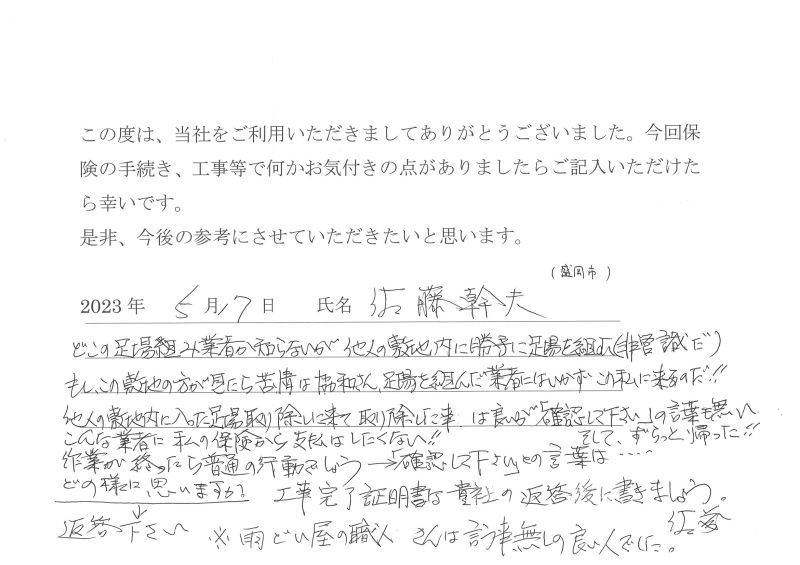 この度は、当社をご利用いただきましてありがとうございました。今回保
険の手続き、工事等で何かお気付きの点がありましたらご記入いただけた
ら幸いです。
是非、今後の参考にさせていただきたいと思います。
(盛岡市)
2023年 5月17日 氏名 佐藤幹夫
どこの足場組み業者か知らないが他人の敷地内に勝手に足場を組む(非常識だ)
もし、この敷地の方が見たら苦情は協和さん、足場を組んだ業者にはいかず この私に来るのだ!!
他人の敷地内に入った足場取り除しに来て取り除しした事は良いが「確認して下さい」の言葉も無い
こんな業者に私の保険から支払はしたくない!! そして、ずらっと帰った!!
作業が終ったら普通の行動でしょう→「確認して下さい」との言葉は‥‥
どの様に思いますか? 工事完了証明書は貴社の返答後に書きましょう。
返答下さい ※雨どい屋の職人さんは言う事無しの良い人でした。 佐藤